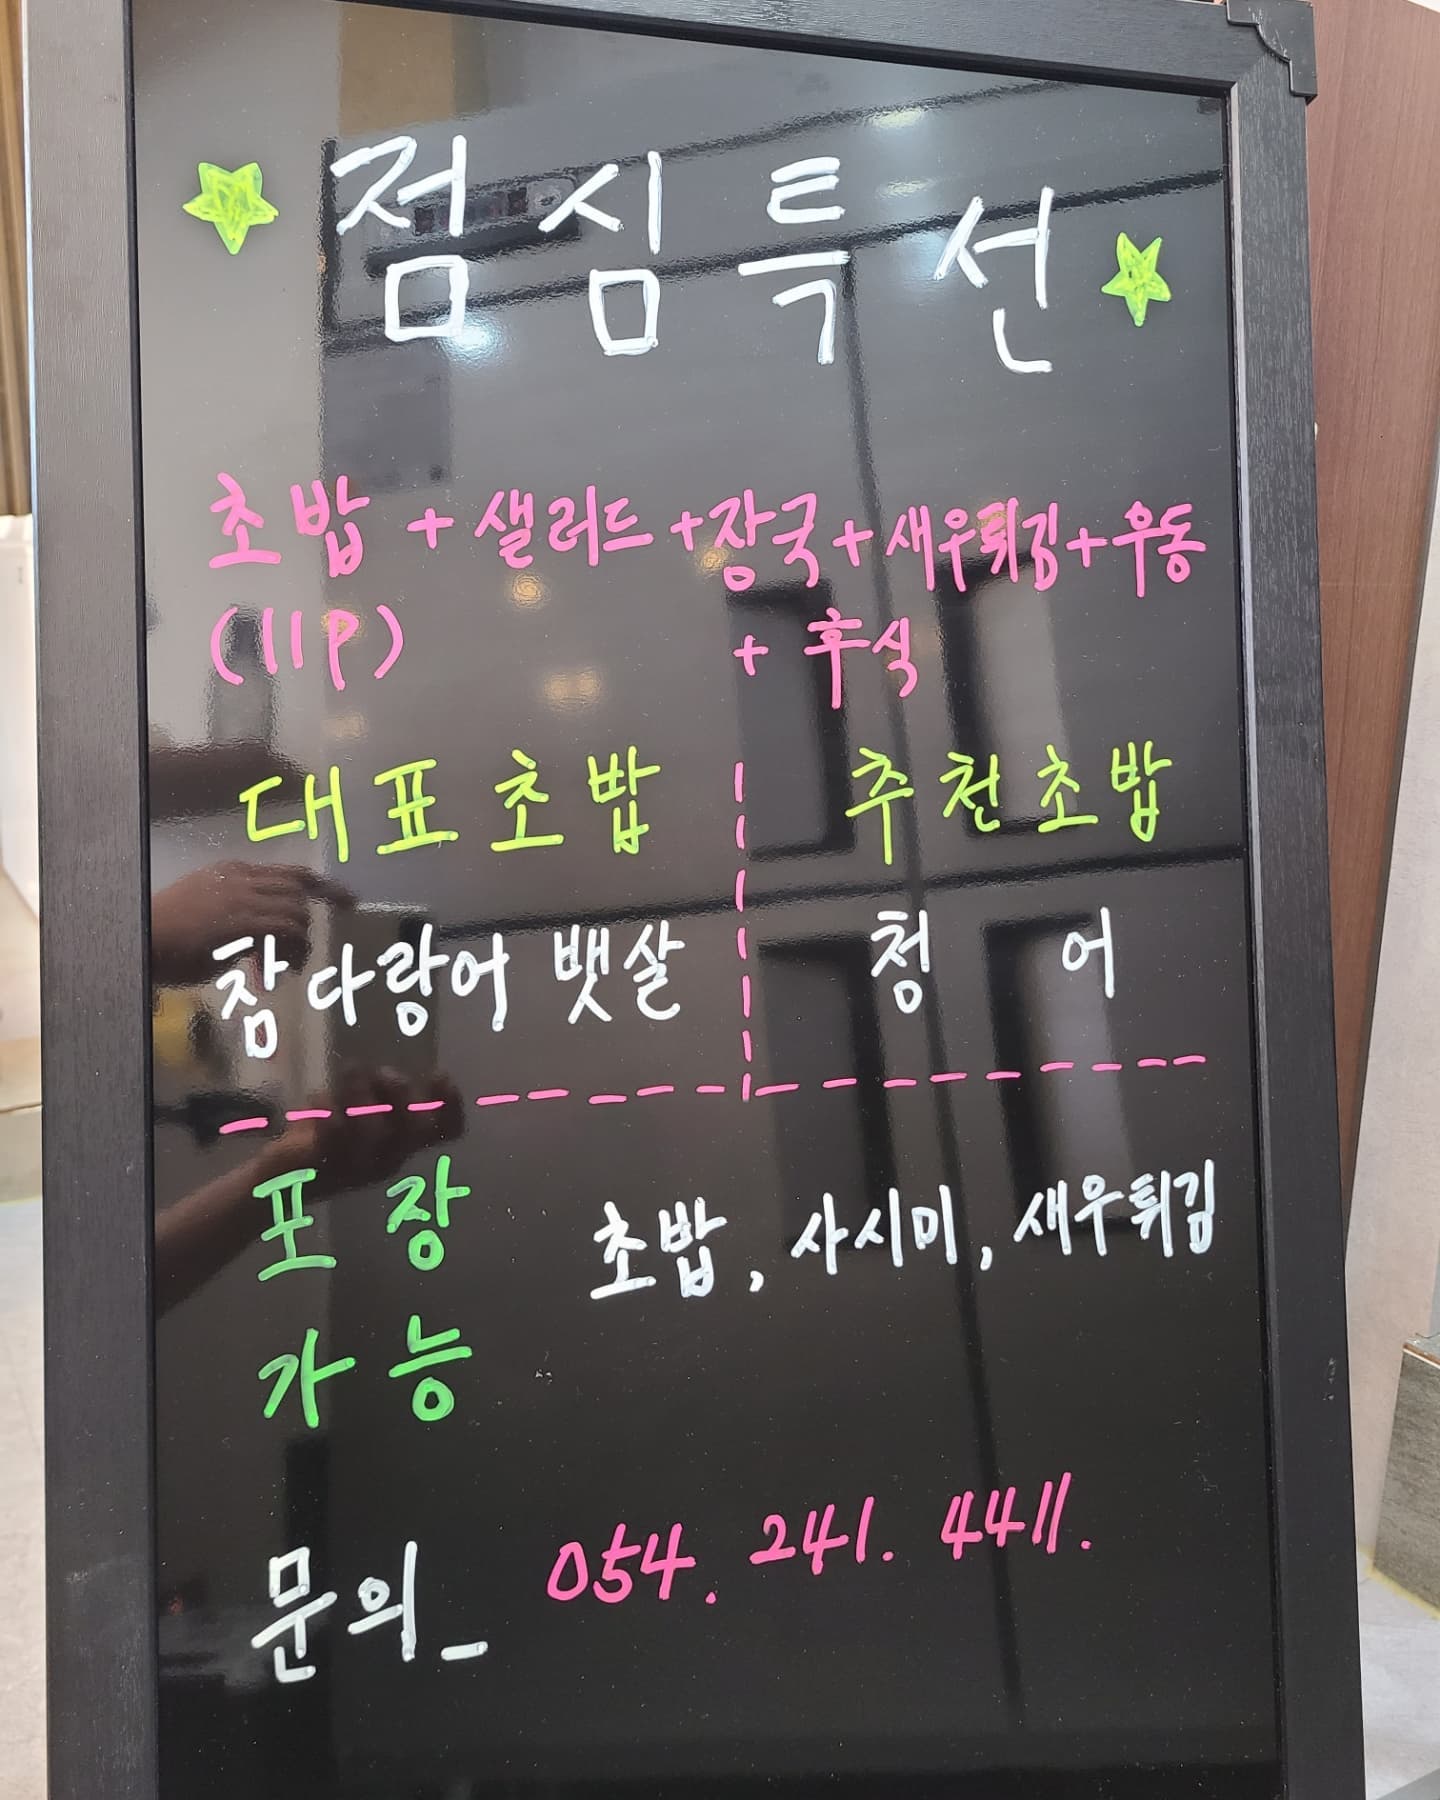 점심특선
초밥 + 샐러드 + 장국 + 새우튀김 + 우동
(11P) + 후식
대표초밥 추천초밥
참다랑어 뱃살 청어
포장 초밥, 사시미, 새우튀김
가능
문의_ 054. 241. 4411.